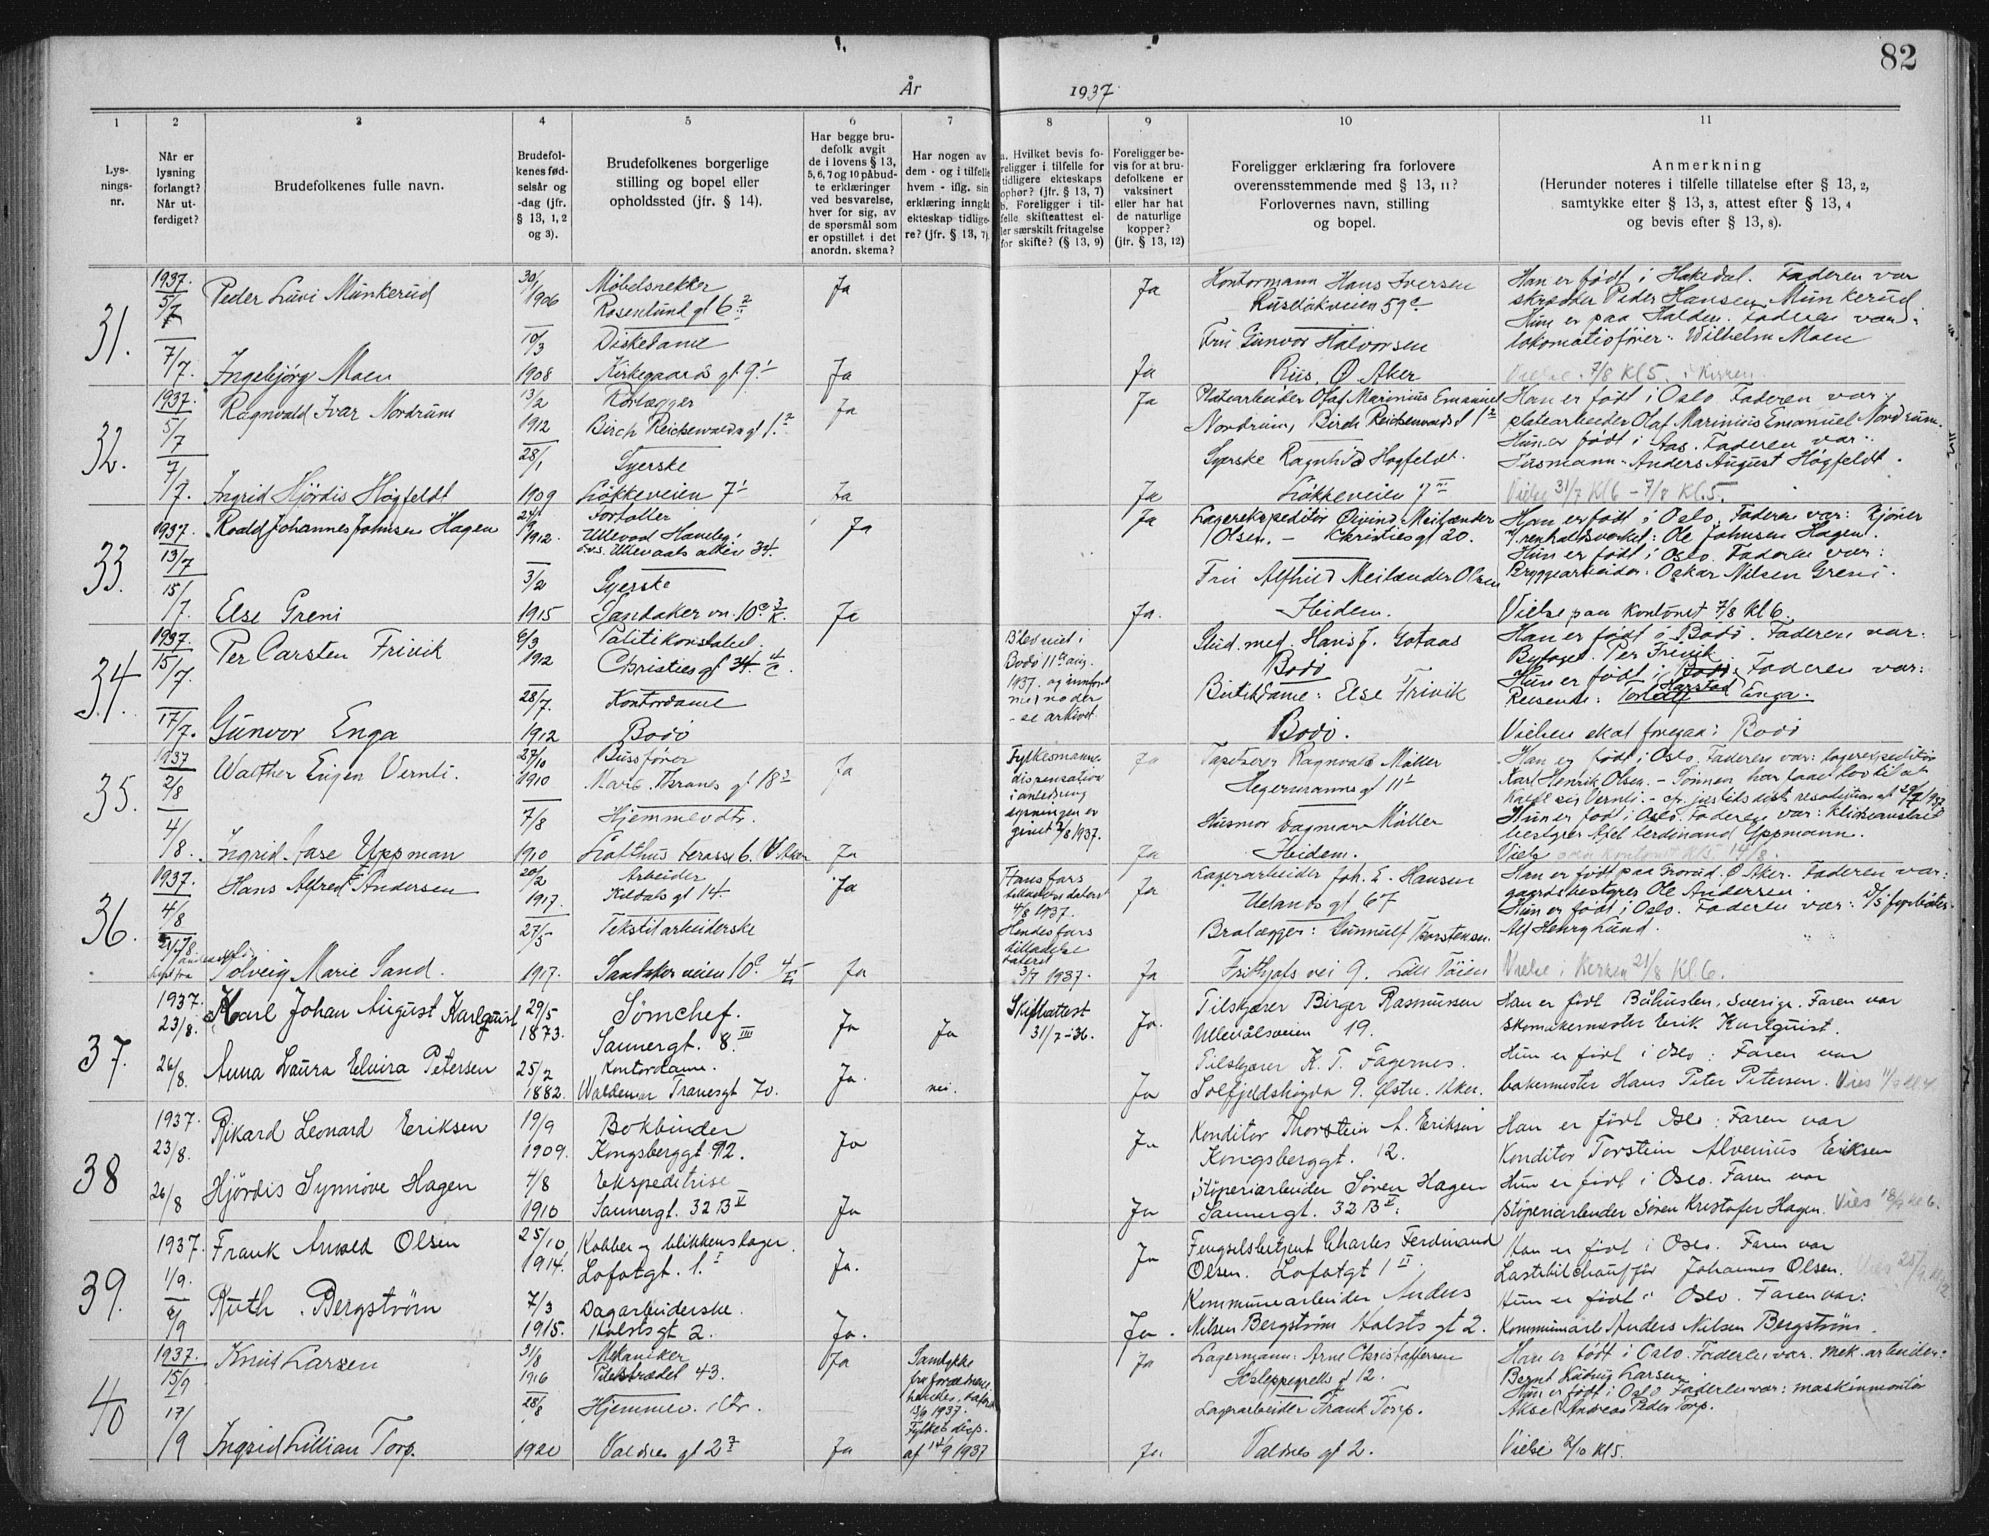 82
År 1937.
1 2 3 4 5 6 7 8 9 10 11
Lysningsnr.
Når er lysning forlangt? Når utferdiget?
Brudefolkenes fulle navn.
Brudefolkenes fødselsår og -dag (jfr. § 13, 1, 2 og 3).
Brudefolkenes borgerlige stilling og bopel eller opholdssted (jfr. § 14).
Har begge brudefolk avgit de i lovens § 13, 5, 6, 7 og 10 påbudte erklæringer ved besvarelse, hver for sig, av de spørsmål som er opstillet i det anordn. skema?
Har nogen av dem - og i tilfelle hvem - iflg. sin erklæring inngåt ekteskap tidligere? (jfr. § 13, 7)
a. Hvilket bevis foreligger i tilfelle for tidligere ekteskaps ophør? (jfr. § 13, 7)
b. Foreligger i tilfelle skifteattest eller særskilt fritagelse for skifte? (§ 13, 9)
Foreligger bevis for at brudefolkene er vaksinert eller har hat de naturlige kopper? (jfr. § 13, 12)
Foreligger erklæring fra forlovere overensstemmende med § 13, 11? Forlovernes navn, stilling og bopel.
Anmerkning
(Herunder noteres i tilfelle tillatelse efter § 13, 2, samtykke etter § 13, 3, attest efter § 13, 4 og bevis efter § 13, 8).
31.
1937. 5/7
7/7.
Peder Munkerud 30/1 1906 Møbelsnekker
Rosenlund gt 6 Ja
Ja Kontormann Hans Iversen
Ruseløkveien 59c
Han er født i Hakedal. Faderen var
skredder Peder Hansen Munkerud
Ingebjørg Moen 10/3 1908 Diskedame
Kirkegaards gt 9 Ja
Ja Fru Gunvor Halvorsen
Riis. Ø Aker
Hun er paa Halden. Faderen var:
lokomotivfører: Wilhelm Moen
Vielse 7/8 Kl 5 i Kirken
32.
1937. 5/7
7/7.
Ragnvald Ivar Nordrum 13/2 1912 Rørlegger
Birch Reichenwalds gt 1. Ja
Ja Platearbeider Olaf Marinius Emanuel
Nordrum, Birch Reichenwalds gt 1
Han er født i Oslo Faderen var:
platearbeider Olaf Marinius Emanuel Nordrum.
Ingrid Hjördis Högfeldt 28/1 1909 Syerske
Løkkeveien 7 Ja
Ja Syerske Ragnhild Høgfeldt.
Løkkeveien 7
Hun er født i Faderen var:
Husmann Anders August Högfeldt.
Vielse 31/7 Kl 6 - 7/8 Kl. 5.
33.
1937. 13/7
15/7.
Roald Johannes Johnsen Hagen 1912. Fortoller
Ullevaal Haveby Ja
Ja Lagerekspeditør Øivind Meilænder
Olsen. - Christies gt 20.
Han er født i Oslo. Faderen var: kjører
v renholdsverket: Ole Johnsen Hagen.
Else Greni 3/2 1915 Syerske
Sandaker vn. 10c Ja
Ja. Fru Alfhild Meilænder Olsen
Ibidem.
Hun er født i Oslo. Faderen var:
Bryggearbeider: Oskar Nilsen Greni.
Vielse paa kontoret 7/8 Kl 6.
34.
1937. 15/7.
17/7.
Per Carsten Frivik 6/3 1912 Politikonstabel.
Christies gt 34.
Blev viet i
Bodø 11te aug.
1937. og innført
med noder
- se arkivet
Stud. med. Hans J. Gotaas
Bodø
Han er født i Bodø. Faderen var:
Byfoged. Per Frivik
Gunvor Enga 28/7. 1912 Kontordame
Bodø
Butikdame: Else Frivik
Bodø.
Hun er født i Bodø: Faderen var:
Harstad
Reisende: Torleif Enga.
Vielsen skal foregaa i Bodø
35.
1937 2/8
4/8.
Walther Eugen Vernli. 27/10 1910 Bussfører
Marc. Thranes gt 18 Ja
Fylkesmanne
dispensation
i anledning
lysningen er
givet 2/8 1937.
Ja Tapetserer Ragnvald Møller
Hegermanns gt 11
Han er født i Oslo. Faderen var: lagerekspeditør
Karl Henrik Olsen. - Sønnen har faaet lov til at
kalde sig Vernli.
Ingrid Aase Uppman 7/8 1910 Hjemmevdtr.
Lofthus terasse 6. V Aker Ja
Ja Husmor Dagmar Møller
Ibidem.
Hun er født i Oslo. Faderen var:
bestyrer Axel Ferdinand Uppmann.
Vielse paa kontoret Kl 5 14/8.
36.
1937. 4/8
Hans Alfred Andersen 20/2 1917. Arbeider
Kildals gt 14. Ja
Hans fars
tilladelse datert
4/8 1937.
Hendes fars
tilladelse
datert
3/7 1937.
Ja Lagerarbeider Joh. E. Hansen
Uelands gt 67
Han er født paa Grorud. Ø Aker. Faderen var:
gaardsbestyrer Ole Andersen.
Solveig Marie Sand. 27/5 1917. Tekstilarbeiderske
Sandaker veien 10c. Ja
Ja Brolægger: Gunnulf Thorstensen.
Frithjofs vei 9. Lille Tøien
Hun er født i Oslo. Faderen var:
Alf Henry Lund.
Vielse i Kirken 21/8 Kl 6.
37.
1937. 23/8.
26/8.
Karl Johan August Karlquist 29/5 1873. Sømchef.
Sannergt. 8. III Ja Ja
Skifteattest
31/7-36.
Ja. Tilskjærer Birger Rasmussen
Ullevålsveien 19.
Han er født Båhuslen, Sverige. Faren var
skomakermester Erik Karlquist.
Anna Laura Elvira Petersen 25/2 1882. Kontordame.
Waldemar Tranesgt 70. Ja. nei.
Ja Tilskjærer K. T. Fagernes.
Solfjeldshøgda 9. Østre Aker.
Hun er født i Oslo: Faren var
bakermester Hans Peter Petersen.
38
1937. 23/8.
26/8
Rikard Leonard Eriksen 19/9 1909. Bokbinder
Kongsberggt 12. Ja
Ja Konditor Thorstein A. Eriksen
Kongsberggt. 12.
Han er født Oslo: Faren var
Konditor Torstein Alvenius Eriksen
Hjördis Synnøve Hagen 4/8 1910 Ekspeditrise
Sannergt. 32 B V Ja
Ja Støperiarbeider Søren Hagen
Sannergt. 32 B V.
Hun er født i Oslo. Faren var
Støperiarbeider Søren Kristofer Hagen. Vies 18/9 kl 6.
39.
1937. 1/9.
Frank Arnold Olsen 25/10 1914. Kobber og blikkenslager.
Lofotgt. 1. I Ja.
Ja Fengselsbetjent Charles Ferdinand
Olsen. Lofotgt 1 II.
Han er født i Oslo. Faren var
Lastebilchauffør Johannes Olsen.
Ruth Bergstrøm 7/3 1915. Dagarbeiderske.
Holsts gt 2. Ja.
Ja. Kommunearbeider Anders
Nilsen Bergstrøm Holsts gt 2.
Hun er født i Oslo. Faren var:
Kommunearb Anders Nilsen Bergstrøm.
40
1937. 15/9
17/9
Knut Larsen 31/8 1916 Mekaniker
Pilestrædet 43. Ja
Samtykke
fra forældrene
13/9 1937.
Fylkets disp.
af 14/9 1937
Ja Lagermann: Arne Christoffersen
Schleppegrells gt 12.
Han er født i Oslo. Faderen var. mek. arbeider:
Bernt Ludvig Larsen
Ingrid Lillian Torp. 28/8 1920 Hjemmev. dtr.
Valdres gt 2 Ja
Ja. Lagerarbeider Frank Torp.
Valdres gt 2.
Hun er født i Oslo Faderen var: maskinmontør
Aksel Andreas Peder Torp.
Vielse 2/10 Kl 5.